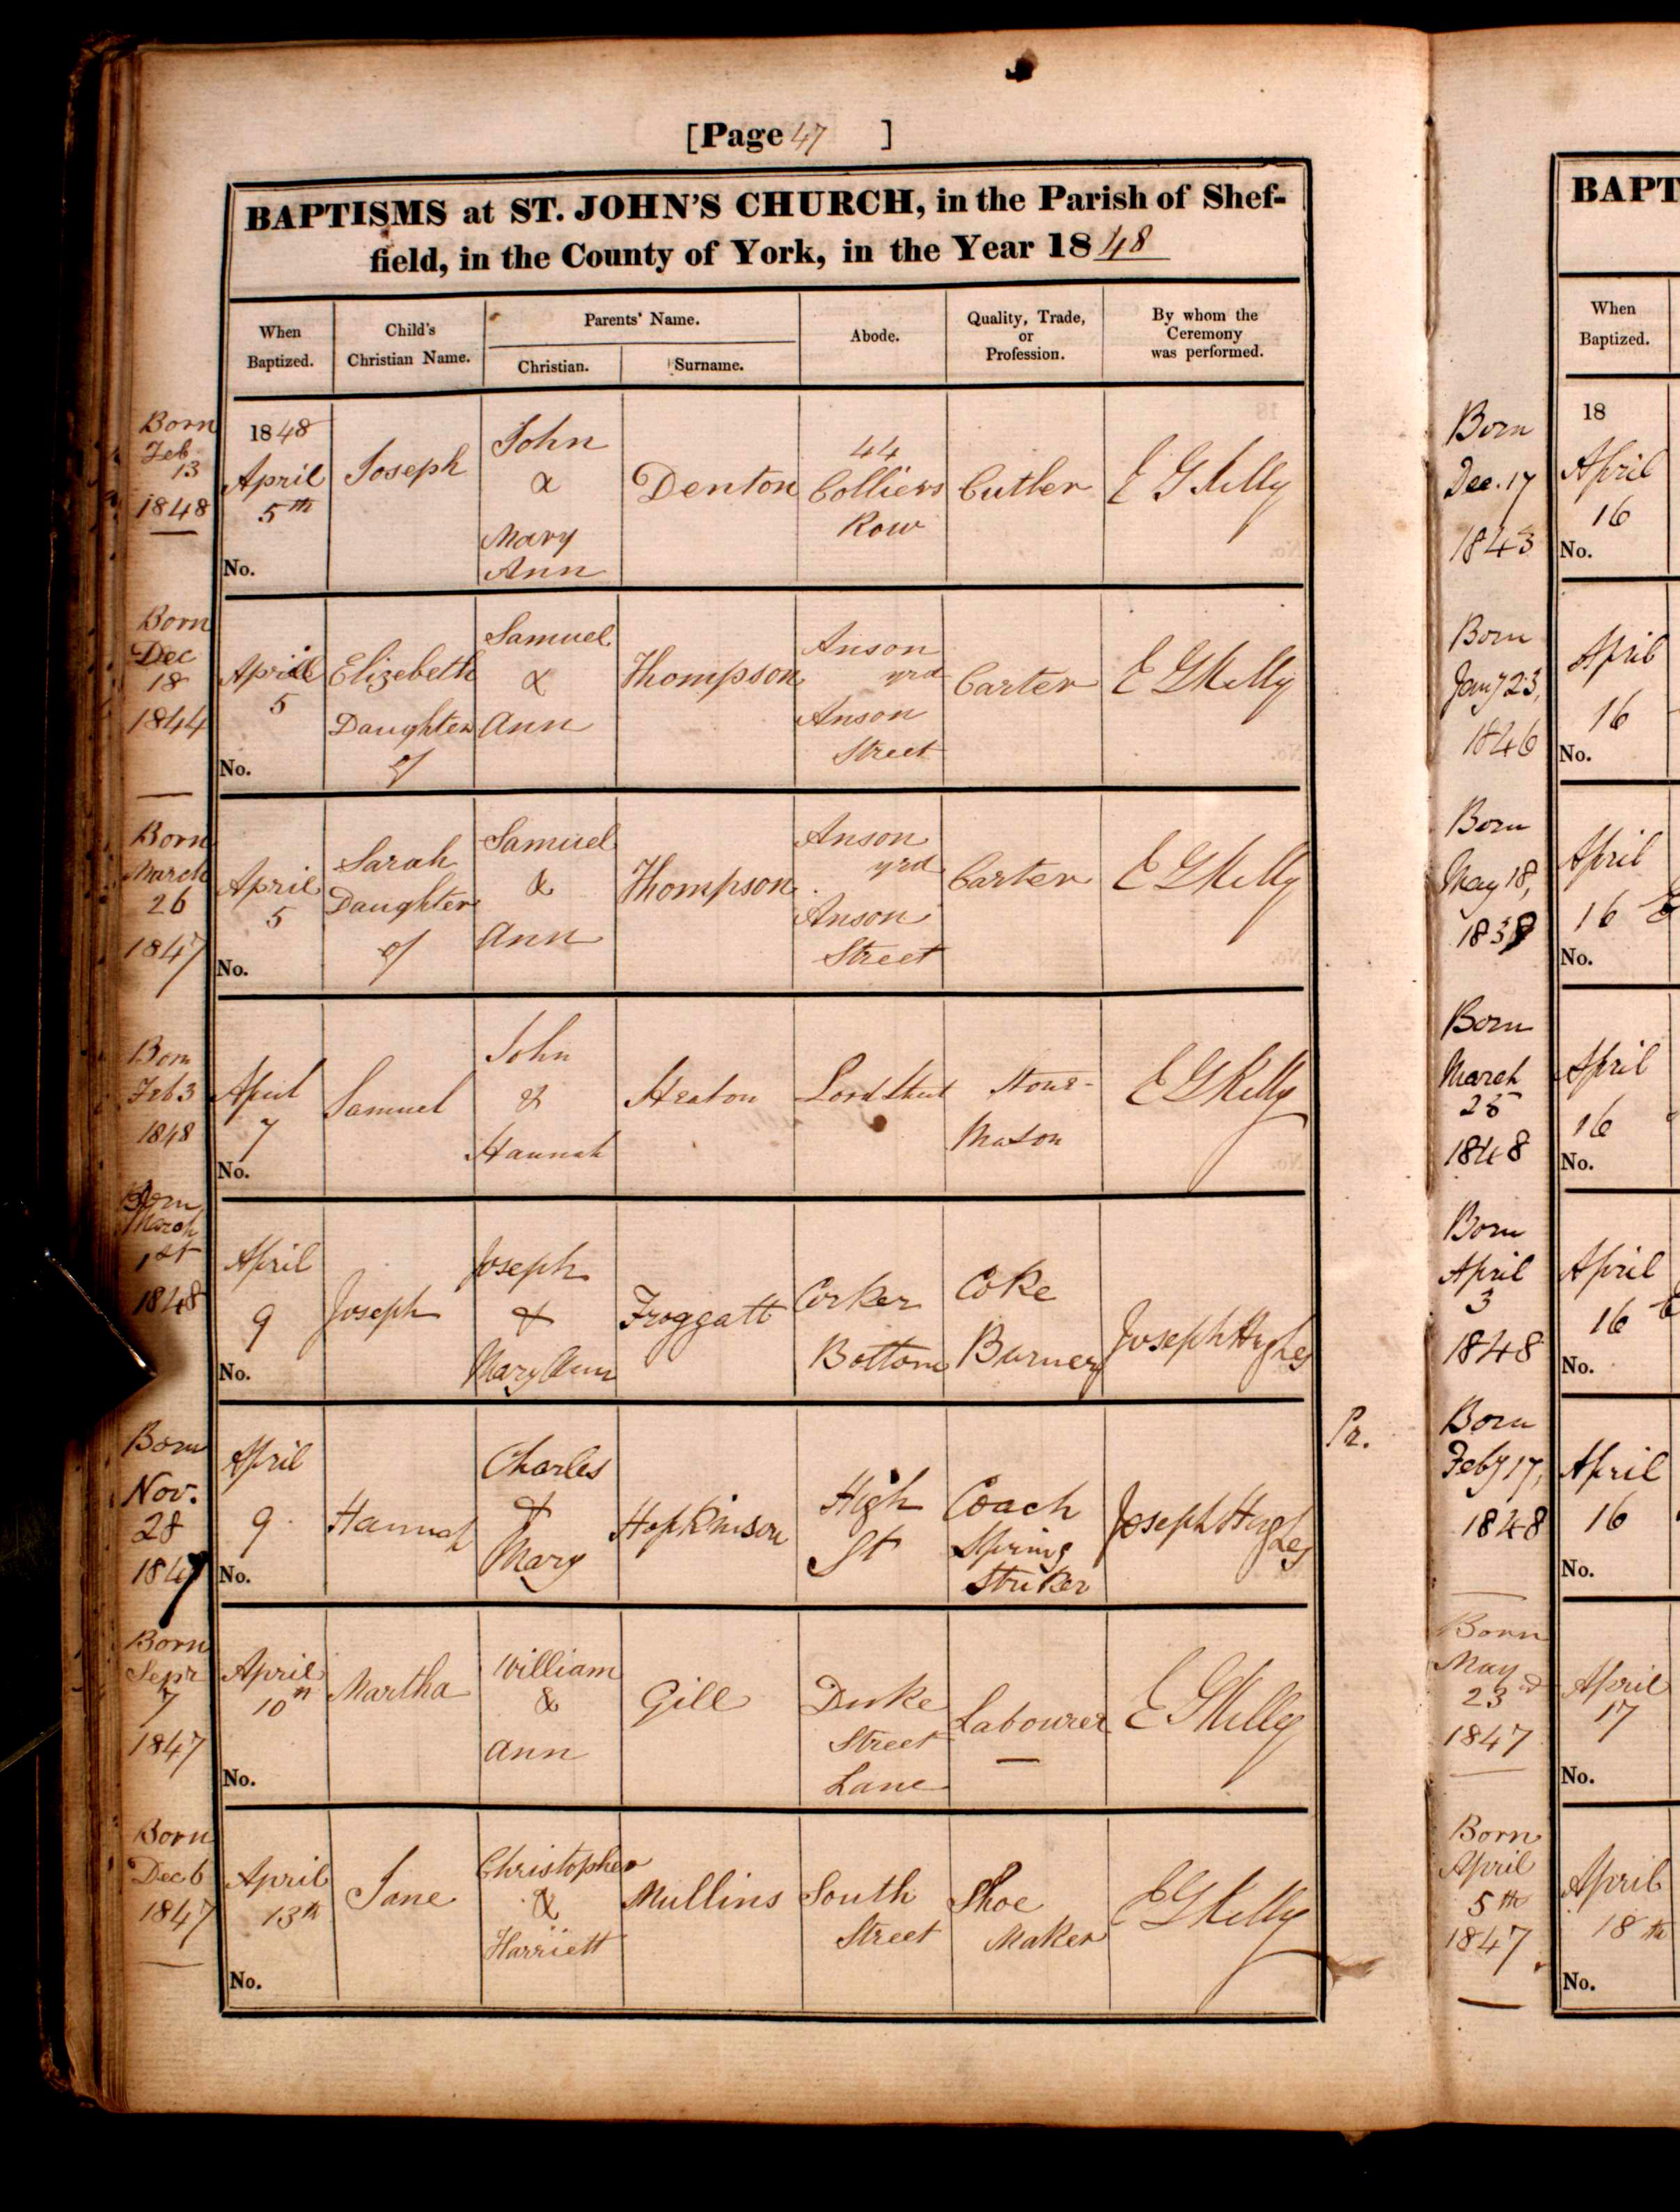 [Page 47 ]
BAPTISMS at ST. JOHN'S CHURCH, in the Parish of Shef-
field, in the County of York, in the Year 1848
When
Baptized.
Child's
Christian Name.
Parents' Name.
Christian.
Surname.
Abode.
Quality, Trade,
or
Profession.
By whom the
Ceremony
was performed.
Born
Feb
13
1848
1848
April
5th
No.
Joseph
John
&
Mary
Ann
Denton
44
Colliers
Row
Cutler
E G Kelly
Born
Dec
18
1844
April
5
No.
Elizebeth
Daughter
of
Samuel
&
Ann
Thompson
Anson
yrd
Anson
Street
Carter
E G Kelly
Born
March
26
1847
April
5
No.
Sarah
Daughter
of
Samuel
&
Ann
Thompson
Anson
yrd
Anson
Street
Carter
E G Kelly
Born
Feb 3
1848
April
7
No.
Samuel
John
&
Hannah
Heaton
Lord Street
Stone-
Mason
E G Kelly
Born
March
1st
1848
April
9
No.
Joseph
Joseph
&
Mary Ann
Froggatt
Corker
Bottom
Coke
Burner
Joseph Hughes
Born
Nov.
28
1847
April
9
No.
Hannah
Charles
&
Mary
Hopkinson
High
St
Coach
Spring
Striker
Joseph Hughes
Born
Sepr
7
1847
April
10th
No.
Martha
William
&
Ann
Gill
Duke
Street
Lane
Labourer
E G Kelly
Born
Dec 6
1847
April
13th
No.
Jane
Christopher
&
Harriett
Mullins
South
Street
Shoe
Maker
E G Kelly
Pr.
BAPT
When
Baptized.
Born
Dec. 17
1843
18
April
16
No.
Born
Jany 23,
1846
April
16
No.
Born
May 18,
April
16
No.
Born
March
25
1848
April
16
No.
Born
April
3
1848
April
16
No.
Born
Feby 17,
1848
April
16
No.
Born
May
23rd
1847
April
17
No.
Born
April
5th
1847
April
18th
No.